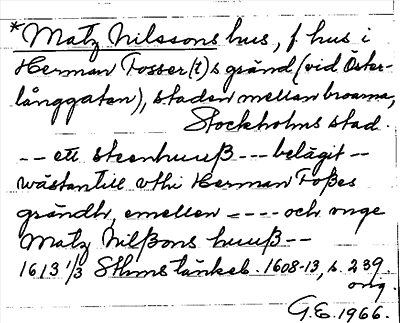 *Matz Nilssons hus, f. hus i
Herman Fosser(t)s gränd (vid Öster-
långgatan), staden mellan broarna,
Stockholms stad.
-- ett steenhuuß --- belägit --
wästantill uthi Herman Foßes
grändh, emellen ---- och unge
Matz Nilßons huuß --
1613 1/3 Sthms tänkeb. 1608-13, s. 239.
orig.
G.E. 1966.